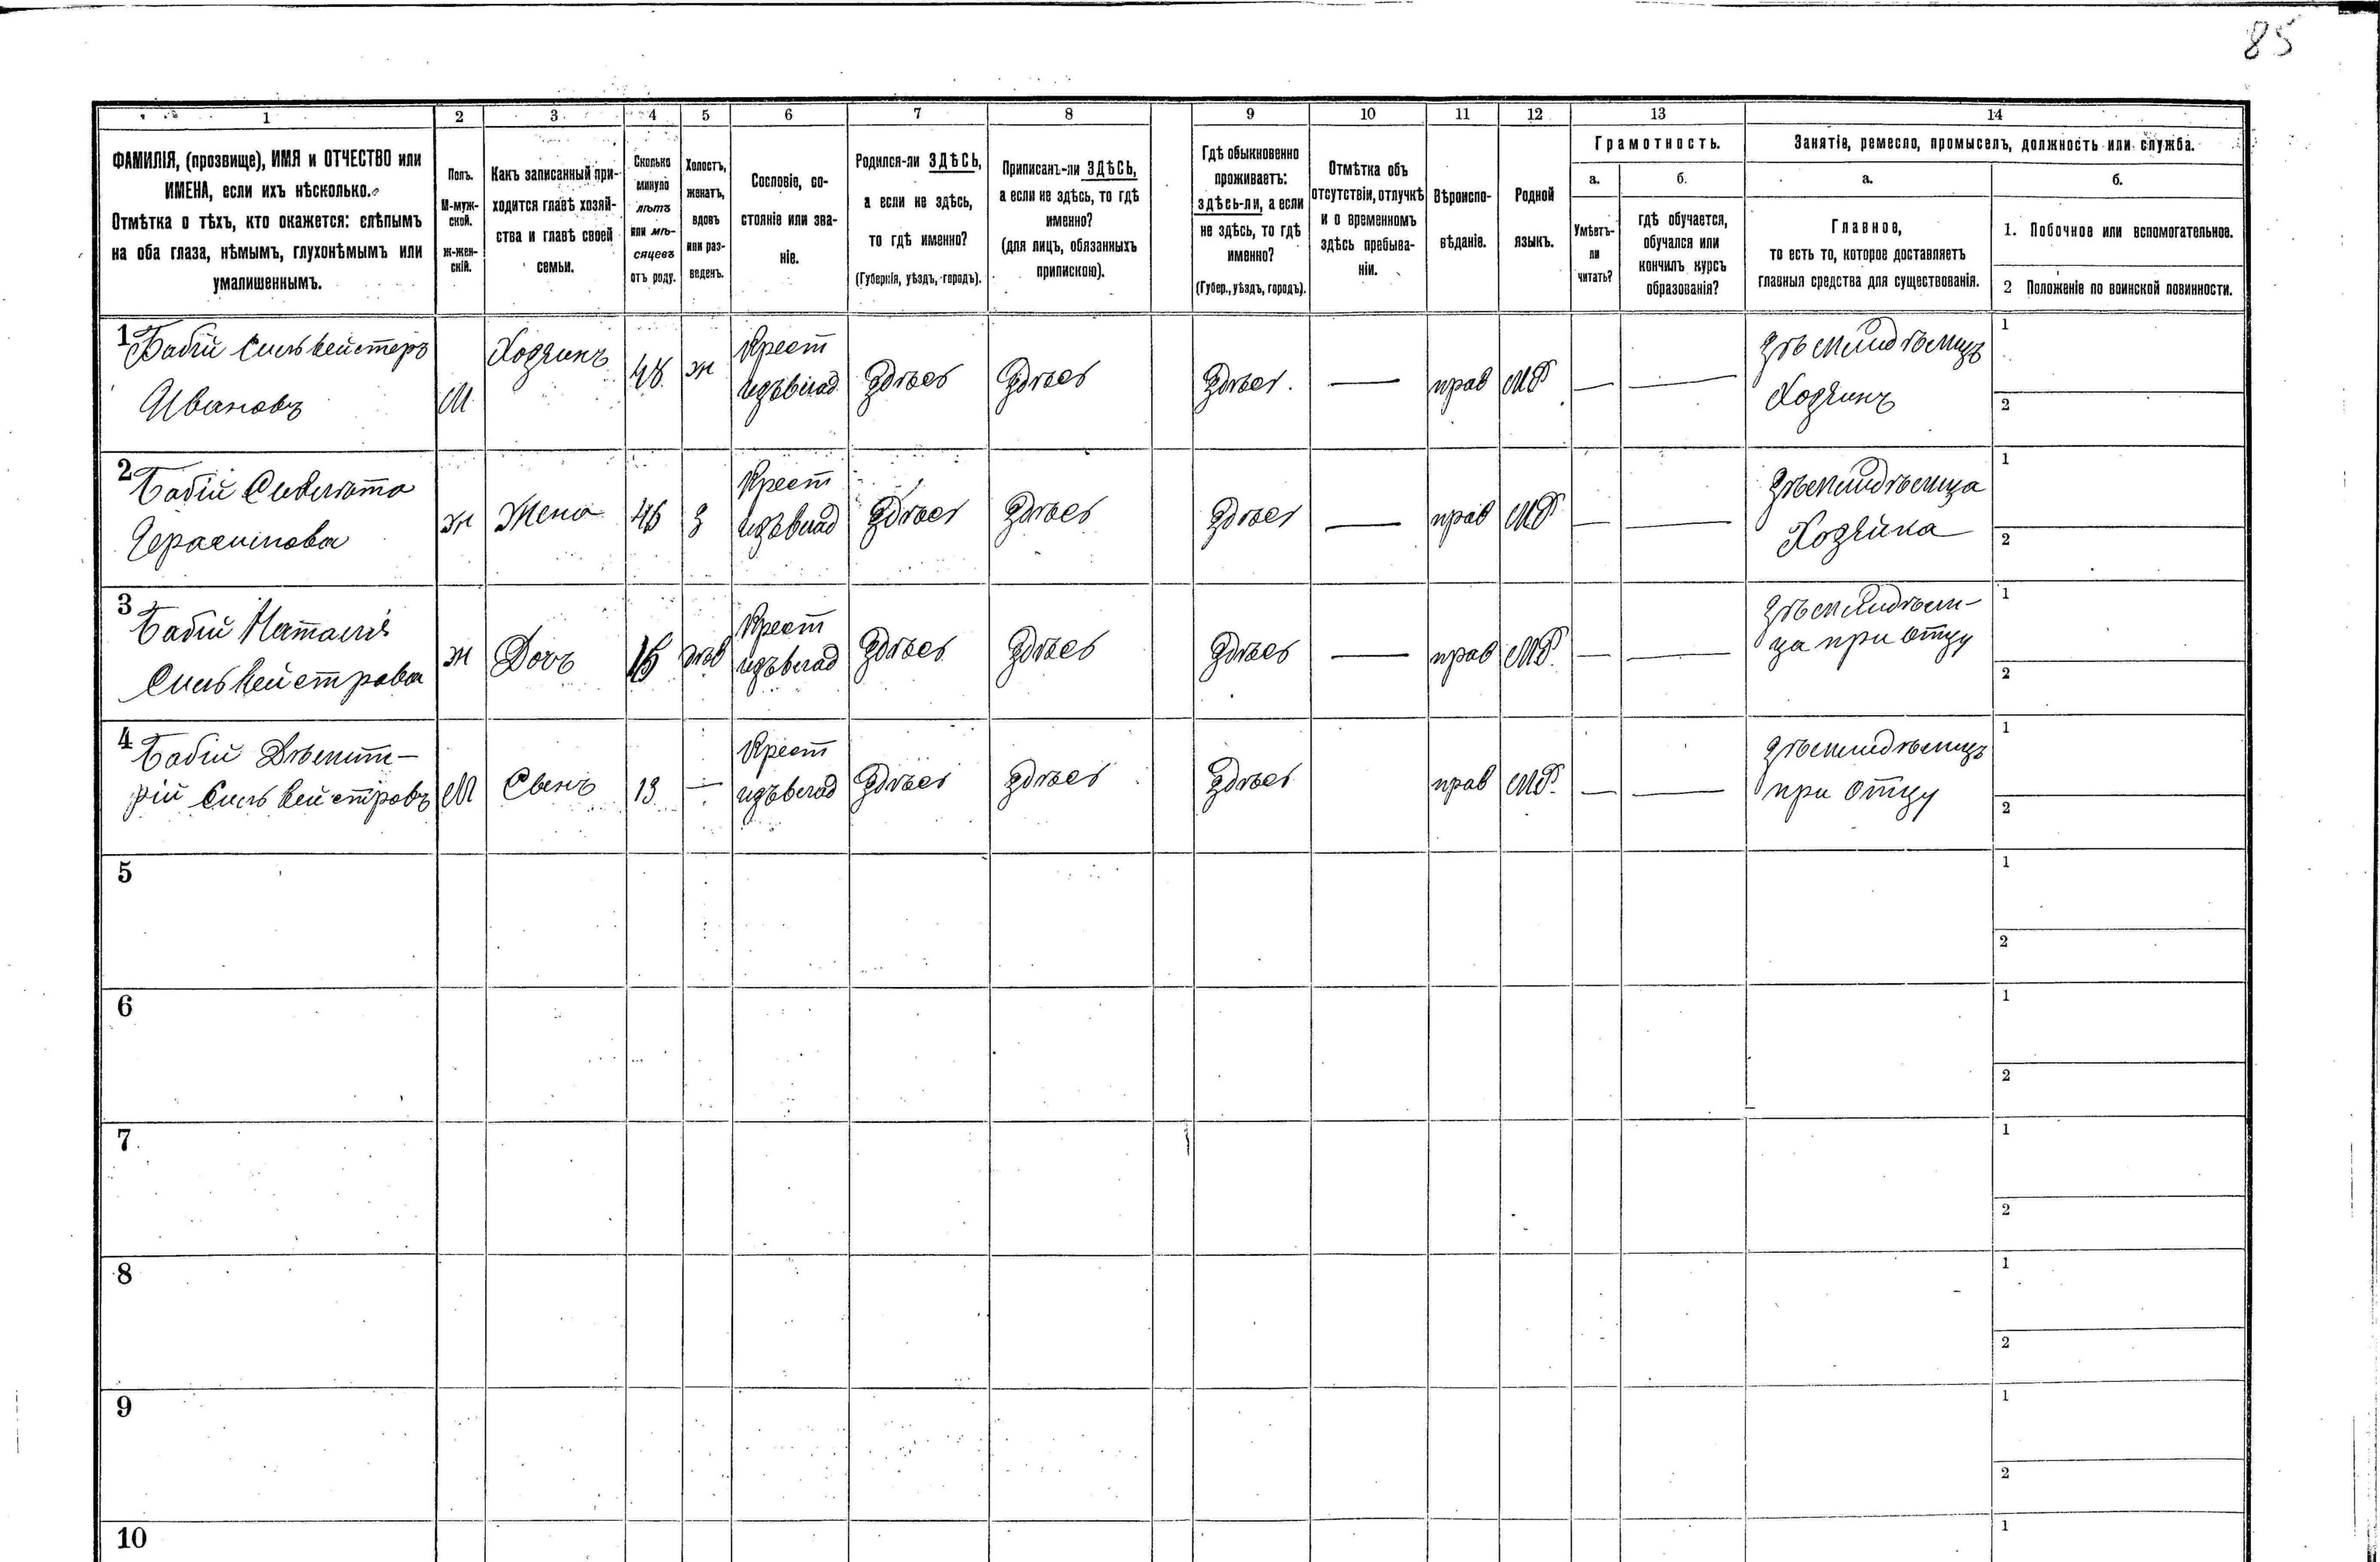 85
1 2 3 4 5 6 7 8 9 10 11 12 13 14
ФАМИЛІЯ, (прозвище), ИМЯ и ОТЧЕСТВО или
ИМЕНА, если ихъ нѣсколько.
Отмѣтка о тѣхъ, кто окажется: слѣпымъ
на оба глаза, нѣмымъ, глухонѣмымъ или
умалишеннымъ.
Полъ.
М-муж-
ской.
Ж-жен-
скій.
Какъ записанный при-
ходится главѣ хозяй-
ства и главѣ своей
семьи.
Сколько
минуло
лѣтъ
или мѣ-
сяцевъ
отъ роду.
Холостъ,
женатъ,
вдовъ
или раз-
веденъ.
Сословіе, со-
стояніе или зва-
ніе.
Родился-ли ЗДѢСЬ,
а если не здѣсь,
то гдѣ именно?
(Губернія, уѣздъ, городъ).
Приписанъ-ли ЗДѢСЬ,
а если не здѣсь, то гдѣ
именно?
(для лицъ, обязанныхъ
припискою).
Гдѣ обыкновенно
проживаетъ:
здѣсь-ли, а если
не здѣсь, то гдѣ
именно?
(Губер., уѣздъ, городъ).
Отмѣтка объ
отсутствіи, отлучкѣ
и о временномъ
здѣсь пребыва-
ніи.
Вѣроиспо-
вѣданіе.
Родной
языкъ.
Грамотность.
а.
Умѣетъ-
ли
читать?
б.
гдѣ обучается,
обучался или
кончилъ курсъ
образованія?
Занятіе, ремесло, промыселъ, должность или служба.
а.
Главное,
то есть то, которое доставляетъ
главныя средства для существованія.
б.
1. Побочное или вспомогательное.
2 Положеніе по воинской повинности.
1
Бабій Сильвейстеръ
Ивановъ
М
Хозяинъ
48
ж
Крест
изъвлад
Здѣсь
Здѣсь
Здѣсь
—
прав
МР
—
—
Зѣмлидѣлицъ
Хозяинъ
1
2
2
Бабій
Герасимова
ж
Жена
45
З
Крест
изъвлад
Здѣсь
Здѣсь
Здѣсь
—
прав
МР
—
—
Зѣмлидѣлица
Хозяйка
1
2
3
Бабій Наталія
Сильвейстрова
ж
Дочь
Крест
изъвлад
Здѣсь
Здѣсь
Здѣсь
—
прав
МР.
—
—
Зѣмлидѣли-
ца при отцу
1
2
4
Бабій Дѣмит-
рій Сильвейстровъ
М
Свенъ
13
—
Крест
изъвлад
Здѣсь
Здѣсь
Здѣсь
прав
МР.
—
—
Зѣмлидѣлицъ
при отцу
1
2
5
1
2
6
1
2
7
1
2
8
1
2
9
1
2
10
1